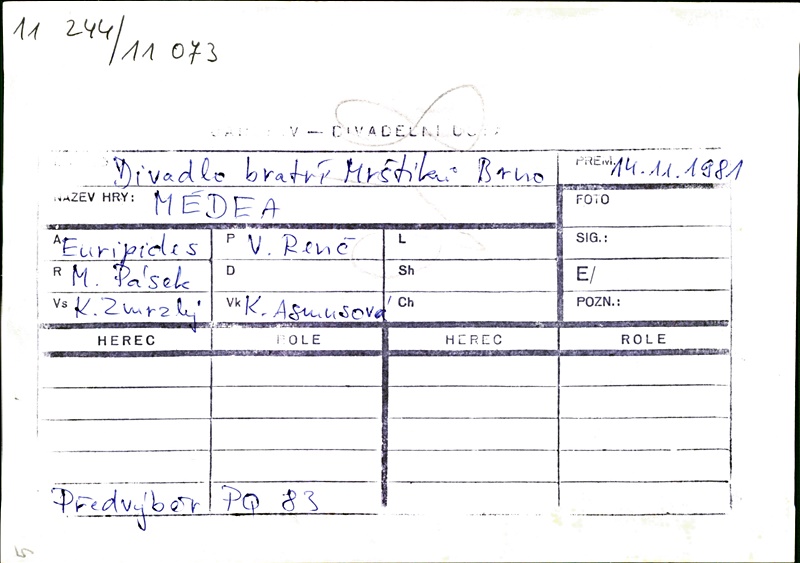 11 244/11 073
— DIVADELNÍ
Divadlo bratří Mrštíků Brno PREM. 14.11.1981
NÁZEV HRY: MÉDEA FOTO
A Euripides P V. Renč L SIG.:
R M. Pásek D Sh E/
Vs K. Zmrzlý Vk K. Asmusová Ch POZN.:
HEREC ROLE HEREC ROLE
Předvýběr PQ 83